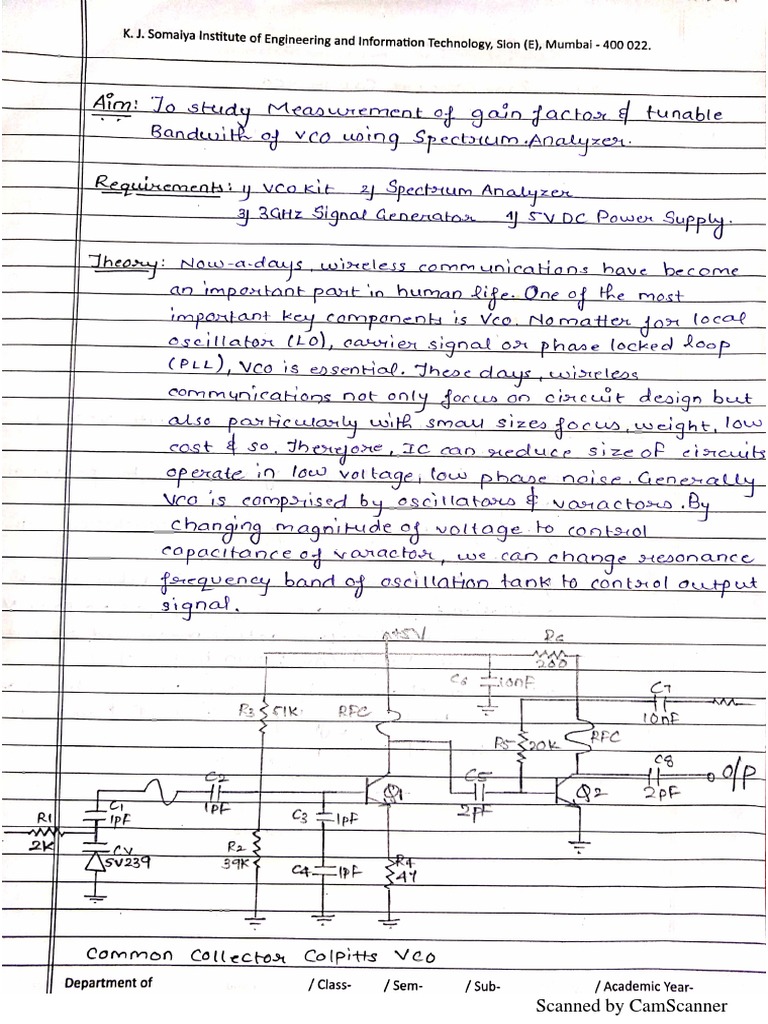 K. J. Somaiya Institute of Engineering and Information Technology, Sion (E), Mumbai - 400 022.
Aim: To study Measurement of gain factor & tunable
Bandwith of VCO using Spectrum Analyzer.
Requirements: 1) VCO Kit 2) Spectrum Analyzer
3) 3GHz Signal Generator 4) 5V DC Power Supply.
Theory: Now-a-days, wireless communications have become
an important part in human life. One of the most
important key components is VCO. No matter for local
oscillator (LO), carrier signal or phase locked loop
(PLL), VCO is essential. These days, wireless
communications not only focus on circuit design but
also particularly with small sizes focus, weight, low
cost & so. Therefore, IC can reduce size of circuits
operate in low voltage, low phase noise. Generally
VCO is comprised by oscillators & varactors. By
changing magnitude of voltage to control
capacitance of varactor, we can change resonance
frequency band of oscillation tank to control output
signal.
+5V R6
200
C6 10nF
C7
10nF
R3 51K RFC
R5 20K RFC
C8
2pF
O/P
C2
1pF
Q1
C5
2pF
Q2
C1
1pF
R1
2K
C3 1pF
CV
5V239
R2
39K
C4 1pF
R4
47
Common Collector Colpitts VCO
Department of / Class- / Sem- / Sub- / Academic Year-
Scanned by CamScanner